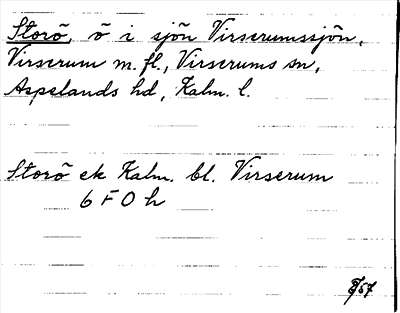 Storö, ö i sjön Virserumssjön,
Virserum m. fl., Virserums sn,
Aspelands hd, Kalm. l.
Storö ek Kalm. bl. Virserum
6 F 0 h